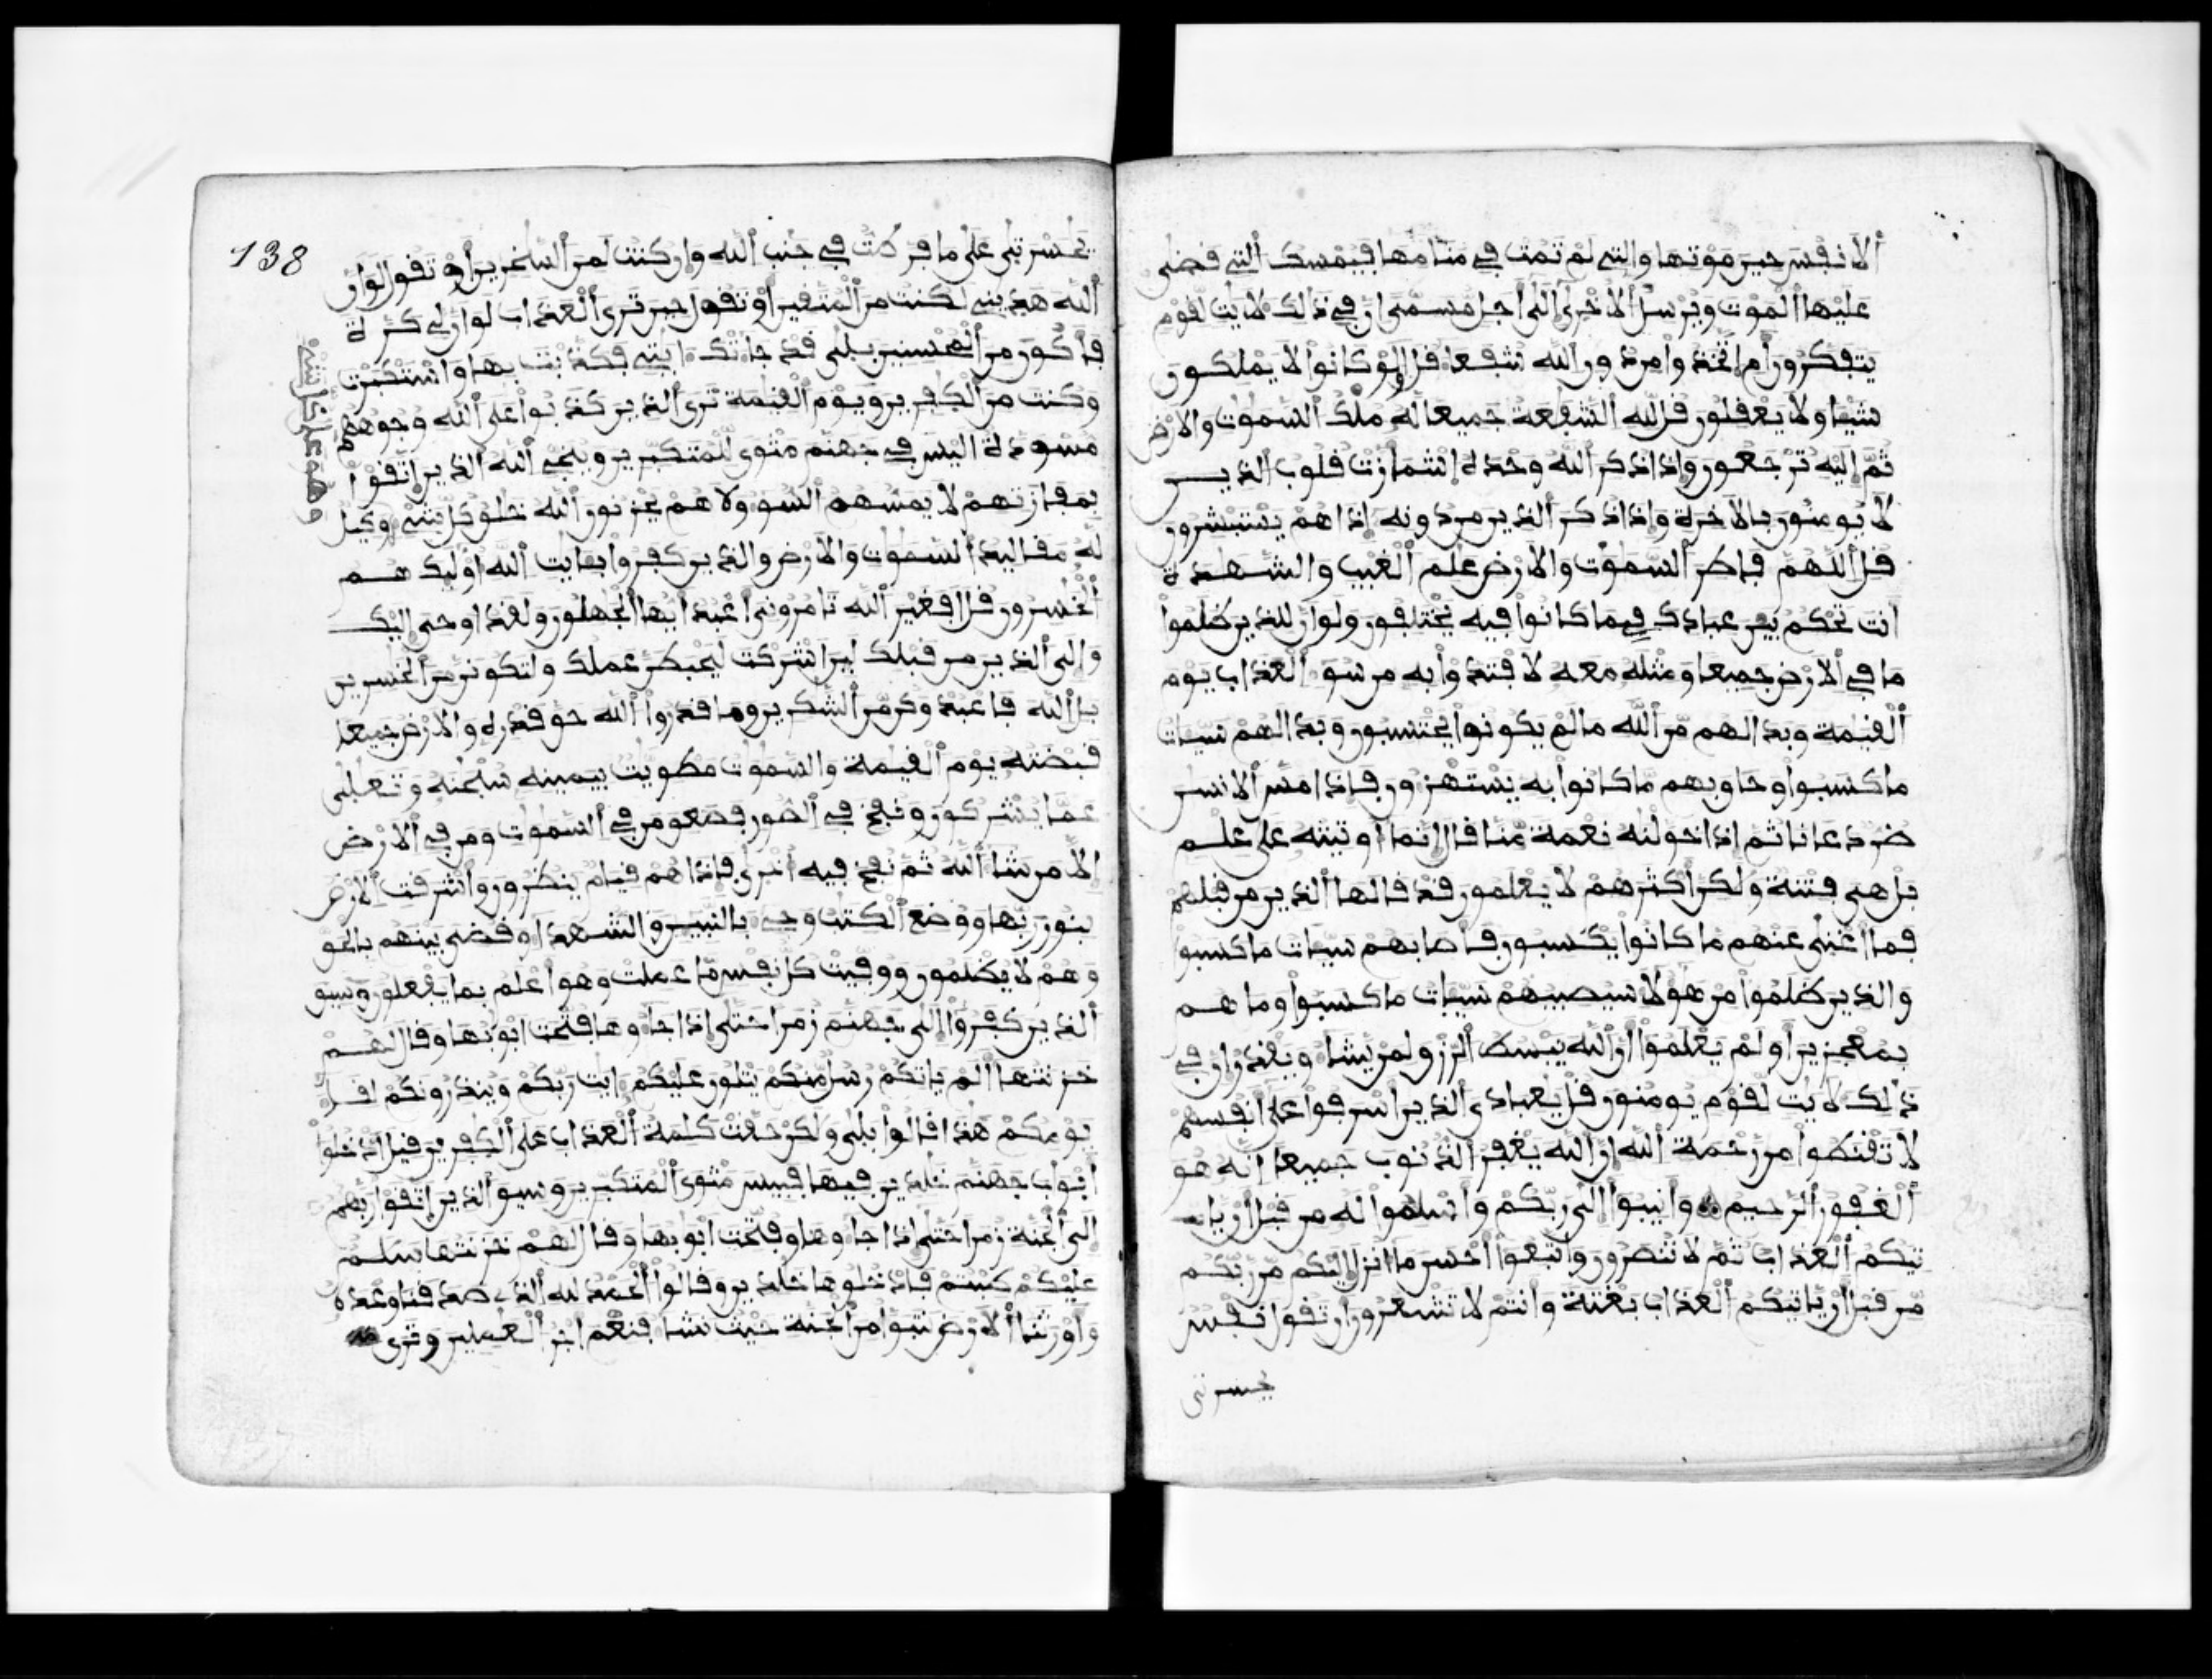 الانفس حين موتها والتي لم تمت في منامها فيمسك التي قضى
عليها الموت ويرسل الاخرى الى اجل مسمى ان في ذلك لايت لقوم
يتفكرون ام اتخذوا من دون الله شفعا قل اولو كانوا لا يملكون
شيا ولا يعقلون قل لله الشفعة جميعا له ملك السموت والارض
ثم اليه ترجعون واذا ذكر الله وحده اشمازت قلوب الذين
لا يومنون بالاخرة واذا ذكر الذين من دونه اذا هم يستبشرون
قل اللهم فاطر السموت والارض علم الغيب والشهدة
انت تحكم بين عبادك فيما كانوا فيه يختلفون ولو ان للذين ظلموا
ما في الارض جميعا ومثله معه لافتدوا به من سو العذاب يوم
القيمة وبدا لهم من الله ما لم يكونوا يحتسبون وبدا لهم سيات
ما كسبوا وحاق بهم ما كانوا به يستهزون فاذا مس الانسن
ضر دعانا ثم اذا خولنه نعمة منا قال انما اوتيته على علم
بل هي فتنة ولكن اكثرهم لا يعلمون قد قالها الذين من قبلهم
فما اغنى عنهم ما كانوا يكسبون فاصابهم سيات ما كسبوا
والذين ظلموا من هولا سيصيبهم سيات ما كسبوا وما هم
بمعجزين اولم يعلموا ان الله يبسط الرزق لمن يشا ويقدر ان في
ذلك لايت لقوم يومنون قل يعبادي الذين اسرفوا على انفسهم
لا تقنطوا من رحمة الله ان الله يغفر الذنوب جميعا انه هو
الغفور الرحيم وانيبوا الى ربكم واسلموا له من قبل ان يا
تيكم العذاب ثم لا تنصرون واتبعوا احسن ما انزل اليكم من ربكم
من قبل ان ياتيكم العذاب بغتة وانتم لا تشعرون ان تقول نفس
يحسرتى
138
يحسرتى على ما فرطت في جنب الله وان كنت لمن السخرين او تقول لو ان
الله هديني لكنت من المتقين او تقول حين ترى العذاب لو ان لي كرة
فاكون من المحسنين بلى قد جاتك ايتي فكذبت بها واستكبرت
وكنت من الكفرين ويوم القيمة ترى الذين كذبوا على الله وجوههم
مسودة اليس في جهنم مثوى للمتكبرين وينجي الله الذين اتقوا
بمفازتهم لا يمسهم السو ولا هم يحزنون الله خلق كل شي وكيل
وهو على كل شي
له مقاليد السموت والارض والذين كفروا بايت الله اوليك هم
الخسرون قل افغير الله تامروني اعبد ايها الجهلون ولقد اوحي اليك
والى الذين من قبلك لين اشركت ليحبطن عملك ولتكونن من الخسرين
بل الله فاعبد وكن من الشكرين وما قدروا الله حق قدره والارض جميعا
قبضته يوم القيمة والسموت مطويت بيمينه سبحنه وتعلى
عما يشركون ونفخ في الصور فصعق من في السموت ومن في الارض
الا من شا الله ثم نفخ فيه اخرى فاذا هم قيام ينظرون واشرقت الارض
بنور ربها ووضع الكتب وجي بالنبيين والشهدا وقضي بينهم بالحق
وهم لا يظلمون ووفيت كل نفس ما عملت وهو اعلم بما يفعلون وسيق
الذين كفروا الى جهنم زمرا حتى اذا جاوها فتحت ابوبها وقال لهم
خزنتها الم ياتكم رسل منكم يتلون عليكم ايت ربكم وينذرونكم لقا
يومكم هذا قالوا بلى ولكن حقت كلمة العذاب على الكفرين قيل ادخلوا
ابوب جهنم خلدين فيها فبيس مثوى المتكبرين وسيق الذين اتقوا ربهم
الى الجنة زمرا حتى اذا جاوها وفتحت ابوبها وقال لهم خزنتها سلم
عليكم طبتم فادخلوها خلدين وقالوا الحمد لله الذي صدقنا وعده
واورثنا الارض نتبوا من الجنة حيث نشا فنعم اجر العملين وترى